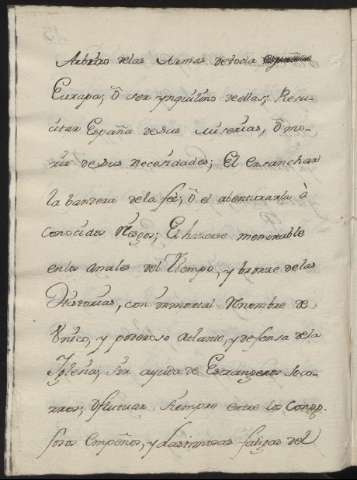 Arbitro de las Armas de toda
Europa; ò ser ynquilino de ellas; Resu-
citar España de sus miserias, ò mo-
rir de sus necesidades; El ensanchar
la bandera de la feè; ò el abenturarla à
conocidos Riesgos; El hacerse memorable
en los Anales del Tiempo, y bronce de las
Historias, con inmortal Renombre de
Unico, y poderoso atlante, y defensa de la
Iglesia; sin ayuda de Estrangeros soco-
rros; ò fluctuar siempre entre los
Corpoños, y lastimosas fatigas del